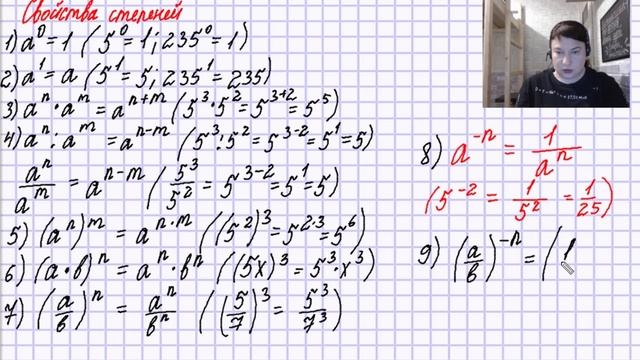 Свойства степеней
1) a⁰ = 1 (5⁰ = 1; 235⁰ = 1)
2) a¹ = a (5¹ = 5; 235¹ = 235)
3) aⁿ · aᵐ = aⁿ⁺ᵐ (5³ · 5² = 5³⁺² = 5⁵)
4) aⁿ : aᵐ = aⁿ⁻ᵐ (5³ : 5² = 5³⁻² = 5¹ = 5)
aⁿ/aᵐ = aⁿ⁻ᵐ (5³/5² = 5³⁻² = 5¹ = 5)
5) (aⁿ)ᵐ = aⁿ·ᵐ ((5²)³ = 5²·³ = 5⁶)
6) (a · b)ⁿ = aⁿ · bⁿ ((5x)³ = 5³ · x³)
7) (a/b)ⁿ = aⁿ/bⁿ ((5/7)³ = 5³/7³)
8) a⁻ⁿ = 1/aⁿ
(5⁻² = 1/5² = 1/25)
9) (a/b)⁻ⁿ = (